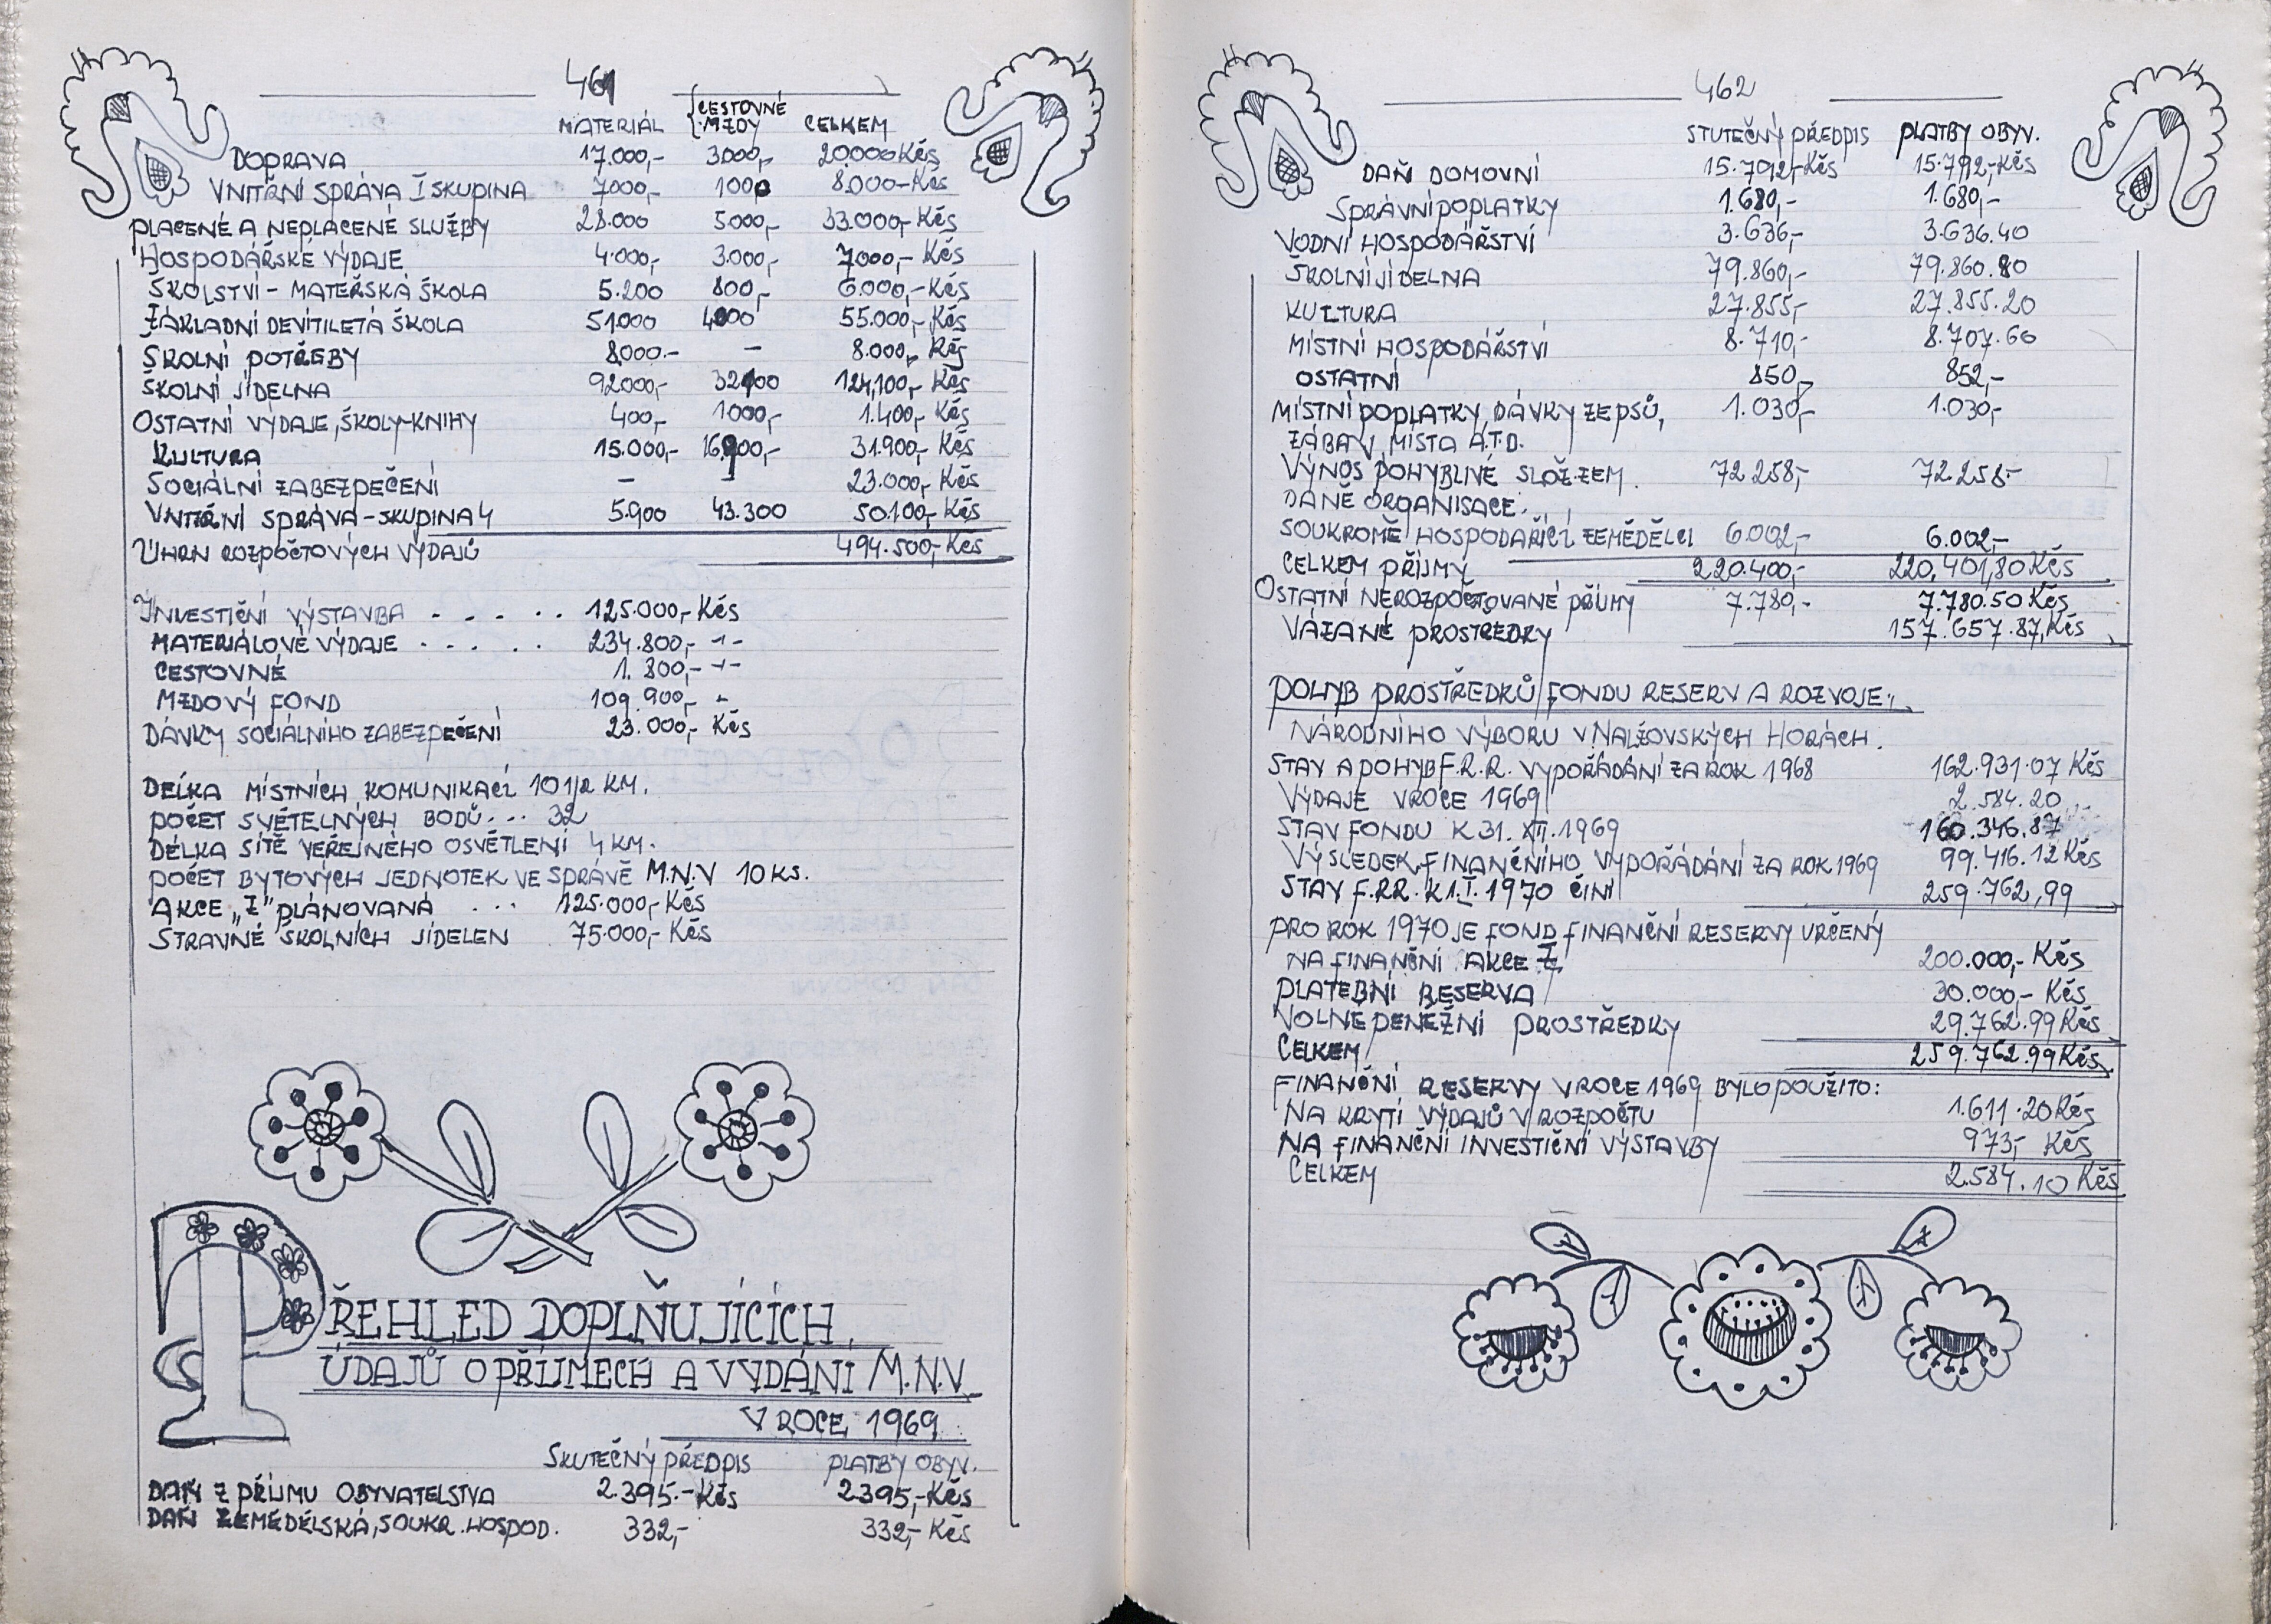 461
MATERIÁL {CESTOVNÉ MZDY CELKEM
DOPRAVA 17.000,- 3000,- 20.000 Kčs
VNITŘNÍ SPRÁVA I SKUPINA 7000,- 1000 8.000- Kčs
PLACENÉ A NEPLACENÉ SLUŽBY 28.000 5.000,- 33.000,- Kčs
HOSPODÁŘSKÉ VÝDAJE 4.000,- 3.000,- 7000,- Kčs
ŠKOLSTVÍ - MATEŘSKÁ ŠKOLA 5.200 800,- 6.000,- Kčs
ZÁKLADNÍ DEVÍTILETÁ ŠKOLA 51.000 4000 55.000,- Kčs
ŠKOLNÍ POTŘEBY 8000.- - 8.000,- Kčs
ŠKOLNÍ JÍDELNA 92000,- 32100 124,100,- Kčs
OSTATNÍ VÝDAJE, ŠKOLY-KNIHY 400,- 1000,- 1.400,- Kčs
KULTURA 15.000,- 16900,- 31.900,- Kčs
SOCIÁLNÍ ZABEZPEČENÍ - - 23.000,- Kčs
VNITŘNÍ SPRÁVA - SKUPINA 4 5.900 43.300 50.100,- Kčs
ÚHRN ROZPOČTOVÝCH VÝDAJŮ 494.500,- Kčs
INVESTIČNÍ VÝSTAVBA - . - . . 125.000,- Kčs
MATERIÁLOVÉ VÝDAJE . - . . . 234.800,- -"-
CESTOVNÉ 1.800,- -"-
MZDOVÝ FOND 109.900,- -"-
DÁVKY SOCIÁLNÍHO ZABEZPEČENÍ 23.000,- Kčs
DÉLKA MÍSTNÍCH KOMUNIKACÍ 10 1/2 KM.
POČET SVĚTELNÝCH BODŮ... 32
DÉLKA SÍTĚ VEŘEJNÉHO OSVĚTLENÍ 4 KM.
POČET BYTOVÝCH JEDNOTEK VE SPRÁVĚ M.N.V 10 KS.
AKCE „Z" PLÁNOVANÁ ... 125.000,- Kčs
STRAVNÉ ŠKOLNÍCH JÍDELEN 75.000,- Kčs
PŘEHLED DOPLŇUJÍCÍCH
ÚDAJŮ O PŘÍJMECH A VYDÁNÍ M.N.V.
V ROCE 1969.
SKUTEČNÝ PŘEDPIS PLATBY OBYV.
DAŇ Z PŘÍJMU OBYVATELSTVA 2.395.- Kčs 2395,- Kčs
DAŇ ZEMĚDĚLSKÁ, SOUKR. HOSPOD. 332,- 332,- Kčs
462
STUTEČNÝ PŘEDPIS PLATBY OBYV.
DAŇ DOMOVNÍ 15.792,- Kčs 15.792,- Kčs
SPRÁVNÍ POPLATKY 1.680,- 1.680,-
VODNÍ HOSPODÁŘSTVÍ 3.636,- 3.636.40
ŠKOLNÍ JÍDELNA 79.860,- 79.860.80
KULTURA 27.855,- 27.855.20
MÍSTNÍ HOSPODÁŘSTVÍ 8.710,- 8.707.60
OSTATNÍ 850,- 852,-
MÍSTNÍ POPLATKY, DÁVKY ZE PSŮ, 1.030,- 1.030,-
ZÁBAV, MÍSTA A.T.D.
VÝNOS POHYBLIVÉ SLOŽ. ZEM. 72.258,- 72.258.-
DANĚ ORGANISACE:
SOUKROMĚ HOSPODAŘÍCÍ ZEMĚDĚLCI 6.002,- 6.002,-
CELKEM PŘÍJMY 220.400,- 220,401,80 Kčs
OSTATNÍ NEROZPOČTOVANÉ PŘÍJMY 7.780,- 7.780.50 Kčs
VÁZANÉ PROSTŘEDKY 157.657.87, Kčs
POHYB PROSTŘEDKŮ FONDU RESERV A ROZVOJE:
NÁRODNÍHO VÝBORU V NALŽOVSKÝCH HORÁCH.
STAV A POHYB F.R.R. VYPOŘÁDÁNÍ ZA ROK 1968 162.931.07 Kčs
VÝDAJE V ROCE 1969 2.584.20
STAV FONDU K 31. XII. 1969 160.346.87
VÝSLEDEK FINANČNÍHO VYPOŘÁDÁNÍ ZA ROK 1969 99.416.12 Kčs
STAV F.R.R. K 1. I. 1970 ČINÍ 259.762,99
PRO ROK 1970 JE FOND FINANČNÍ RESERVY URČENÝ
NA FINANČNÍ AKCE Z 200.000,- Kčs
PLATEBNÍ RESERVA 30.000,- Kčs
VOLNÉ PENĚŽNÍ PROSTŘEDKY 29.762.99 Kčs
CELKEM 259.762.99 Kčs
FINANČNÍ RESERVY V ROCE 1969 BYLO POUŽITO:
NA KRYTÍ VÝDAJŮ V ROZPOČTU 1.611.20 Kčs
NA FINANČNÍ INVESTIČNÍ VÝSTAVBY 973,- Kčs
CELKEM 2.584.10 Kčs